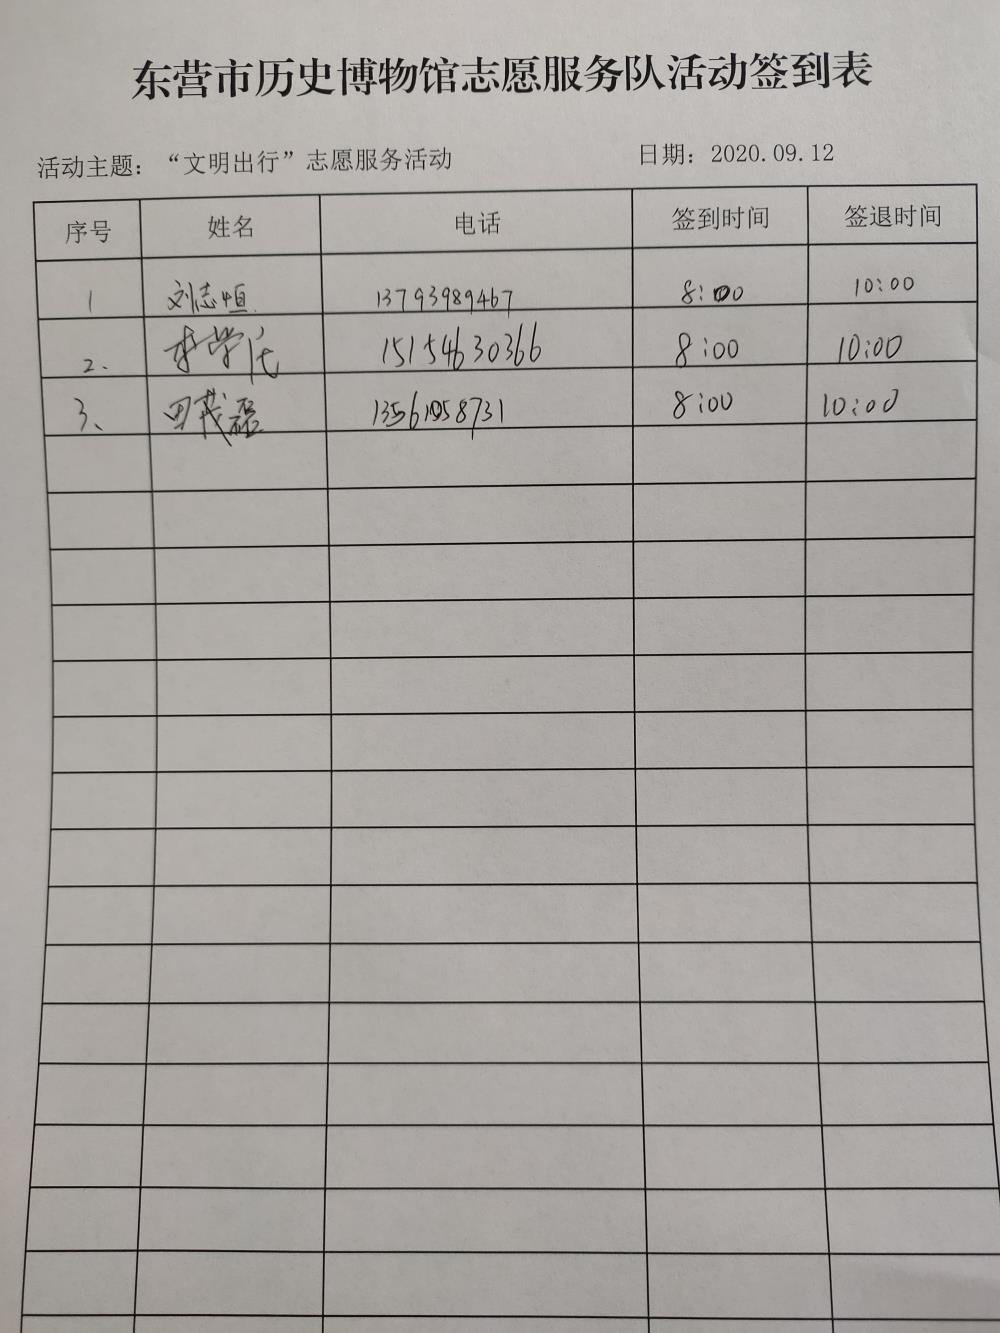 东营市历史博物馆志愿服务队活动签到表
活动主题：“文明出行”志愿服务活动 日期：2020.09.12
序号 姓名 电话 签到时间 签退时间
1 刘志恒 13793989467 8:00 10:00
2. 15154630366 8:00 10:00
3、 田茂磊 8:00 10:00